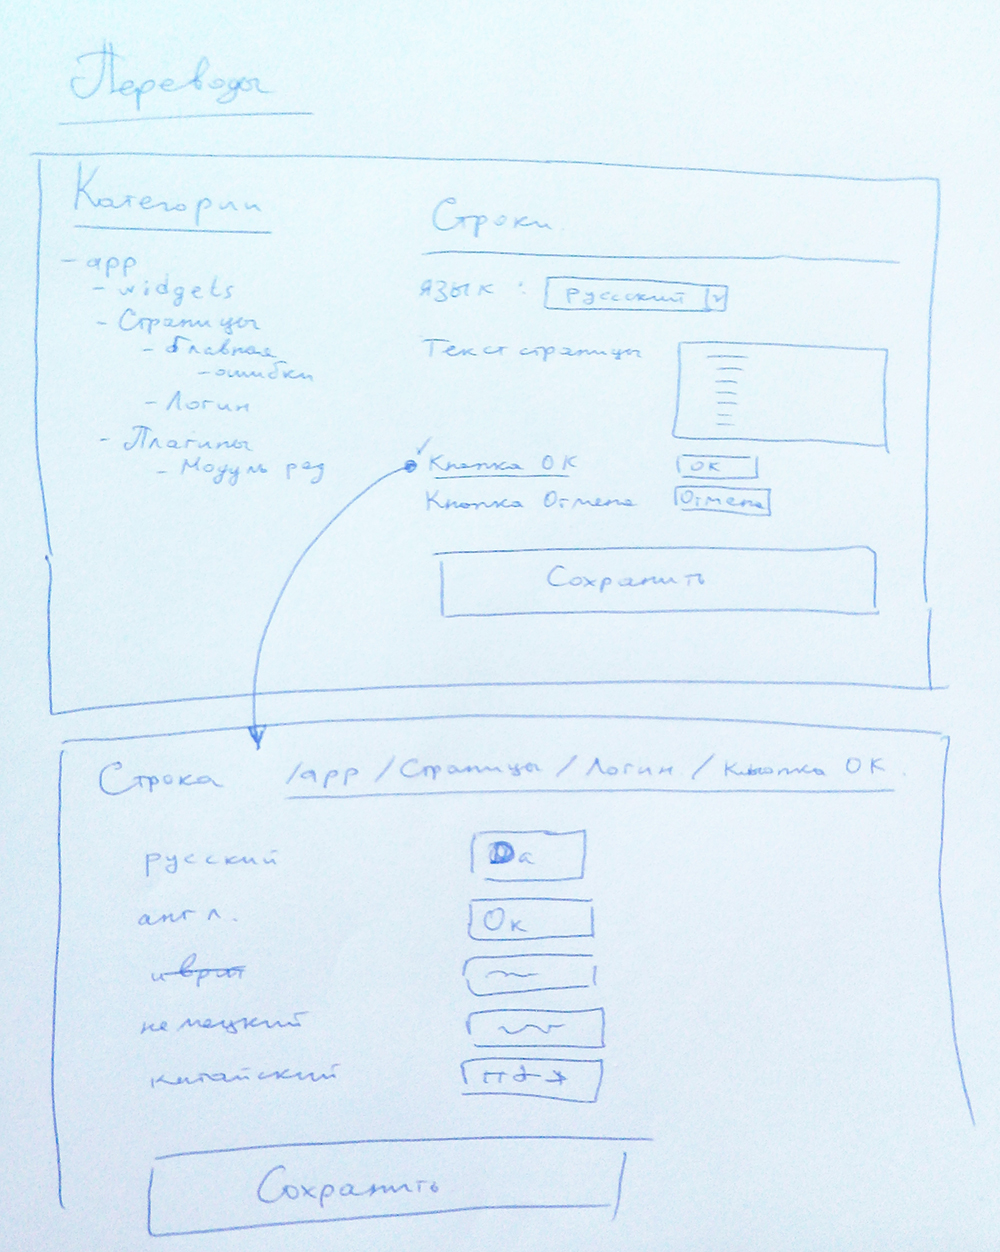 Переводы
Категории
- app
- widgets
- Страницы
- Главная
- ошибки
- Логин
- Плагины
- Модуль ряд
Строки
язык : русский
Текст страницы
Кнопка ОК ОК
Кнопка Отмена Отмена
Сохранить
Строка /app / Страницы / Логин / Кнопка ОК
русский Да
англ. Ок
иврит
немецкий
китайский
Сохранить